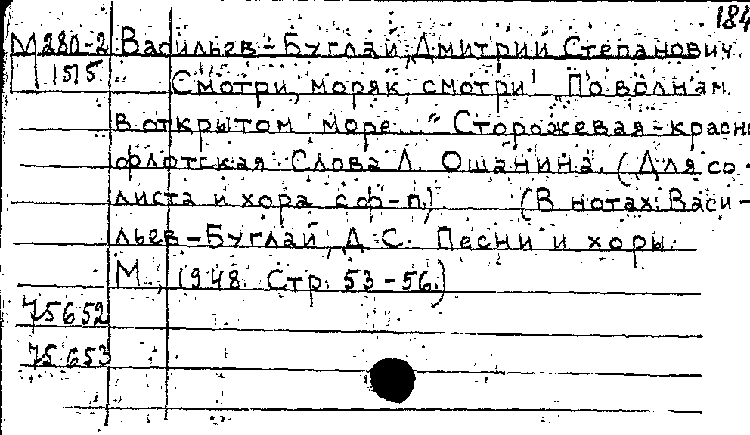 184
М 280-2 Васильев-Буглай, Дмитрий Степанович.
1515 Смотри, моряк, смотри! "По волнам
в открытом море..." Сторожевая-красно-
флотская. Слова Л. Ошанина. (Для со-
листа и хора с ф-п.) (В нотах: Васи-
льев-Буглай, Д.С. Песни и хоры.
М., 1948. Стр. 53-56.)
75652
75653